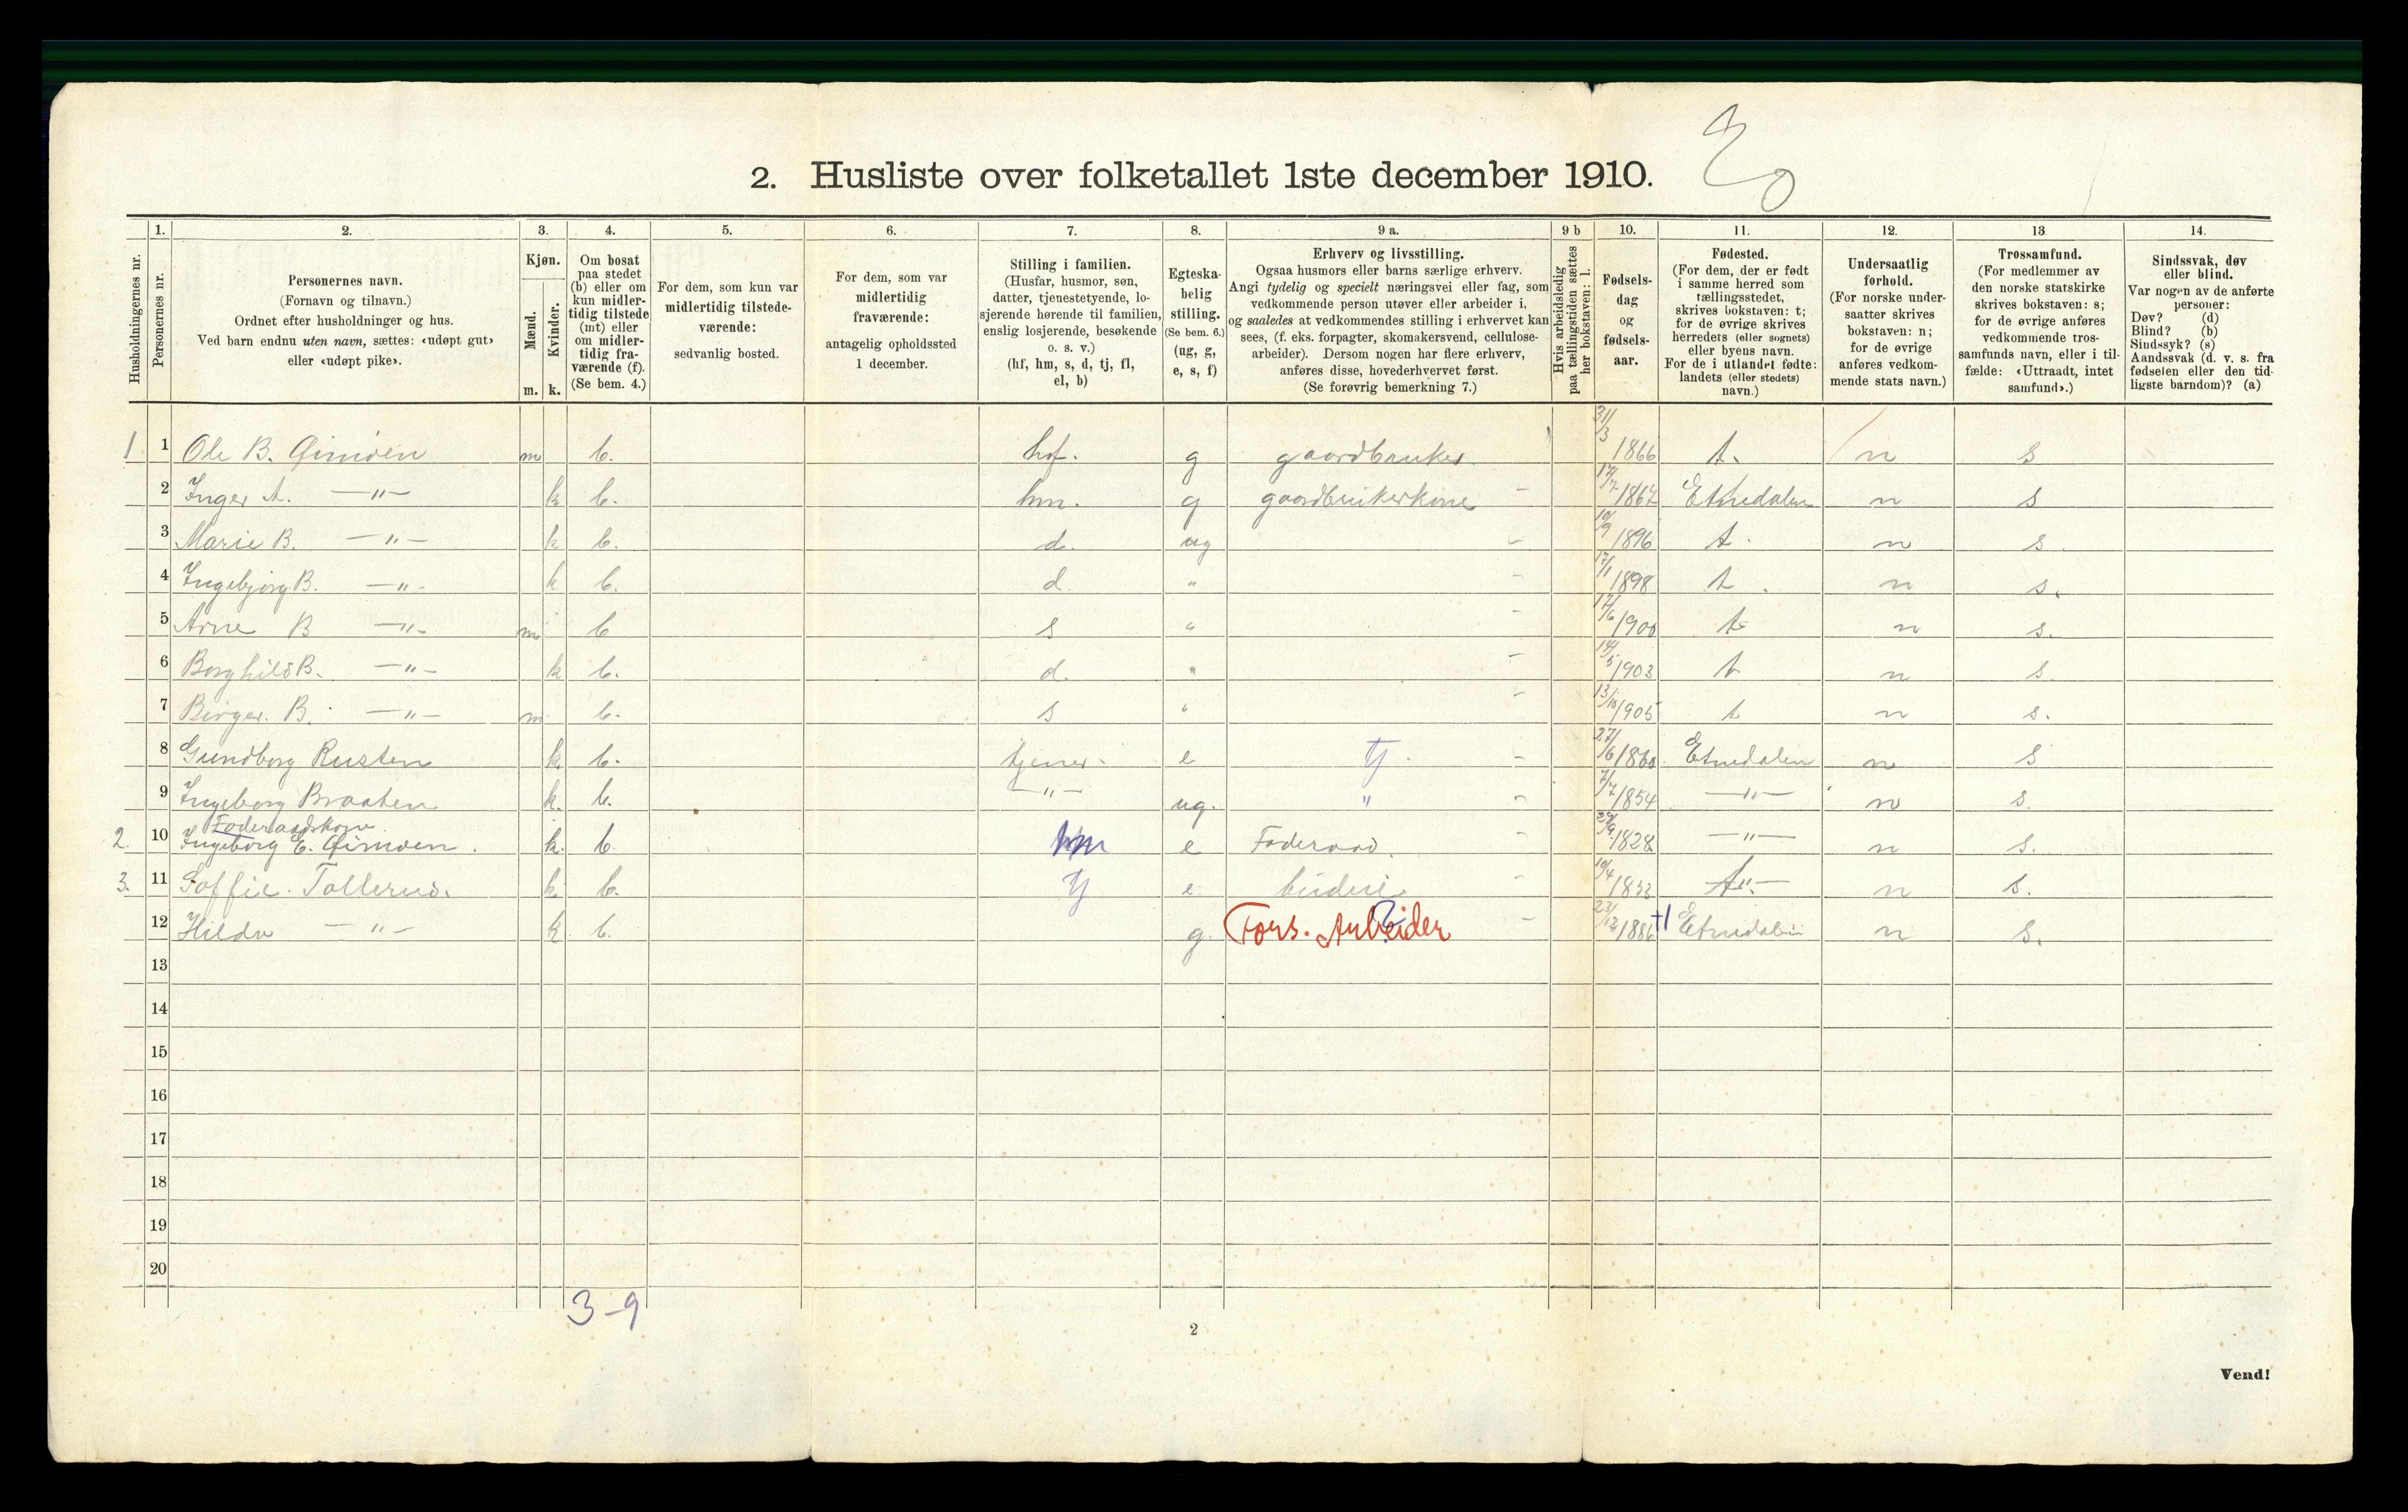 2. Husliste over folketallet 1ste december 1910.
1. 2. 3. 4. 5. 6. 7. 8. 9 a. 9 b 10. 11. 12. 13. 14.
Husholdningernes nr.
Personernes nr.
Personernes navn.
(Fornavn og tilnavn.)
Ordnet efter husholdninger og hus.
Ved barn endnu uten navn, sættes: «udøpt gut»
eller «udøpt pike».
Kjøn.
Mænd.
Kvinder.
m. k.
Om bosat
paa stedet
(b) eller om
kun midler-
tidig tilstede
(mt) eller
om midler-
tidig fra-
værende (f).
(Se bem. 4.)
For dem, som kun var
midlertidig tilstede-
værende:
sedvanlig bosted.
For dem, som var
midlertidig
fraværende:
antagelig opholdssted
1 december.
Stilling i familien.
(Husfar, husmor, søn,
datter, tjenestetyende, lo-
sjerende hørende til familien,
enslig losjerende, besøkende
o. s. v.)
(hf, hm, s, d, tj, fl,
el, b)
Egteska-
belig
stilling.
(Se bem. 6.)
(ug, g,
e, s, f)
Erhverv og livsstilling.
Ogsaa husmors eller barns særlige erhverv.
Angi tydelig og specielt næringsvei eller fag, som
vedkommende person utøver eller arbeider i,
og saaledes at vedkommendes stilling i erhvervet kan
sees, (f. eks. forpagter, skomakersvend, cellulose-
arbeider). Dersom nogen har flere erhverv,
anføres disse, hovederhvervet først.
(Se forøvrig bemerkning 7.)
Hvis arbeidsledig
paa tællingstiden sættes
her bokstaven: l.
Fødsels-
dag
og
fødsels-
aar.
Fødested.
(For dem, der er født
i samme herred som
tællingsstedet,
skrives bokstaven: t;
for de øvrige skrives
herredets (eller sognets)
eller byens navn.
For de i utlandet fødte:
landets (eller stedets)
navn.)
Undersaatlig
forhold.
(For norske under-
saatter skrives
bokstaven: n;
for de øvrige
anføres vedkom-
mende stats navn.)
Trossamfund.
(For medlemmer av
den norske statskirke
skrives bokstaven: s;
for de øvrige anføres
vedkommende tros-
samfunds navn, eller i til-
fælde: «Uttraadt, intet
samfund».)
Sindssvak, døv
eller blind.
Var nogen av de anførte
personer:
Døv? (d)
Blind? (b)
Sindssyk? (s)
Aandssvak (d. v. s. fra
fødselen eller den tid-
ligste barndom)? (a)
1 1 Ole B. Gimøen m b. hf. g gaardbruker 31/3 1866 t. n s
2 Inger A. —"— k b. hm. g gaardbrukerkone - 1867 Etnedalen n s
3 Marie B. —"— k b. d. ug - 10/9 1896 t. n s.
4 Ingebjørg B. —"— k b. d. " - 17/11 1898 t. n s.
5 Arne B —"— m b s " - 17/6 1900 t n s.
6 Borghild B. —"— k b. d. " - 14/5 1903 t n s.
7 Birger. B. —"— m b. s " - 13/10 1905 t n s.
8 Gundborg Rusten k b. tjener e tj. - 27/6 1860 Etnedalen n s
9 Ingeborg Braaten k. b. —"— ug. " - 7/7 1854 —"— n s.
Føderaadskone
2. 10 Ingeborg E. Gimøen. k. b. hm e Føderaad. - 1828 —"— n s.
3. 11 Soffie. Tollerud. k b. tj e. budeie - 10/4 1853 t. —"— n s.
12 Hilda —"— k b. g. Fors. Arbeider - 23/12 1886 Etnedalen n s.
13
14
15
16
17
18
18
19
20
3-9
2
Vend!